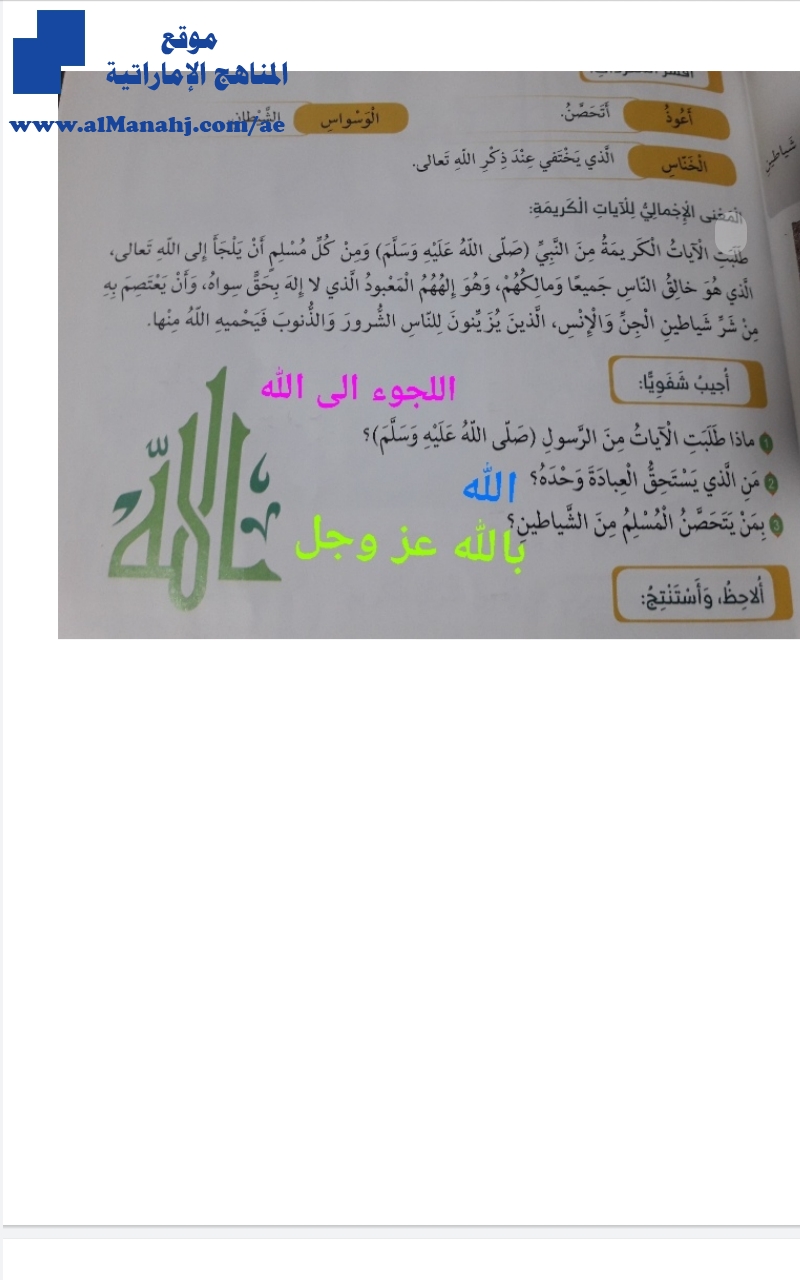 موقع
المناهج الإماراتية
www.alManahj.com/ae
أَعُوذُ أَتَحَصَّنُ. الْوَسْواسِ الشَّيْطانِ.
الْخَنَّاسِ الَّذي يَخْتَفي عِنْدَ ذِكْرِ اللّهِ تَعالى.
شَياطينِ
الْمَعْنى الْإِجْمالِيُّ لِلْآياتِ الْكَريمَةِ:
طَلَبَتِ الْآياتُ الْكَريمَةُ مِنَ النَّبِيِّ (صَلّى اللّهُ عَلَيْهِ وَسَلَّمَ) وَمِنْ كُلِّ مُسْلِمٍ أَنْ يَلْجَأَ إِلى اللّهِ تَعالى،
الَّذي هُوَ خالِقُ النّاسِ جَميعًا وَمالِكُهُمْ، وَهُوَ إِلهُهُمُ الْمَعْبودُ الَّذي لا إِلهَ بِحَقٍّ سِواهُ، وَأَنْ يَعْتَصِمَ بِهِ
مِنْ شَرِّ شَياطينِ الْجِنِّ وَالْإِنْسِ، الَّذينَ يُزَيِّنونَ لِلنّاسِ الشُّرورَ وَالذُّنوبَ فَيَحْميهِ اللّهُ مِنْها.
أُجيبُ شَفَوِيًّا:
اللجوء الى الله
1 ماذا طَلَبَتِ الْآياتُ مِنَ الرَّسولِ (صَلّى اللّهُ عَلَيْهِ وَسَلَّمَ)؟
2 مَنِ الَّذي يَسْتَحِقُّ الْعِبادَةَ وَحْدَهُ؟ الله
3 بِمَنْ يَتَحَصَّنُ الْمُسْلِمُ مِنَ الشَّياطينِ؟ بالله عز وجل
اللّه
أُلاحِظُ، وَأَسْتَنْتِجُ: